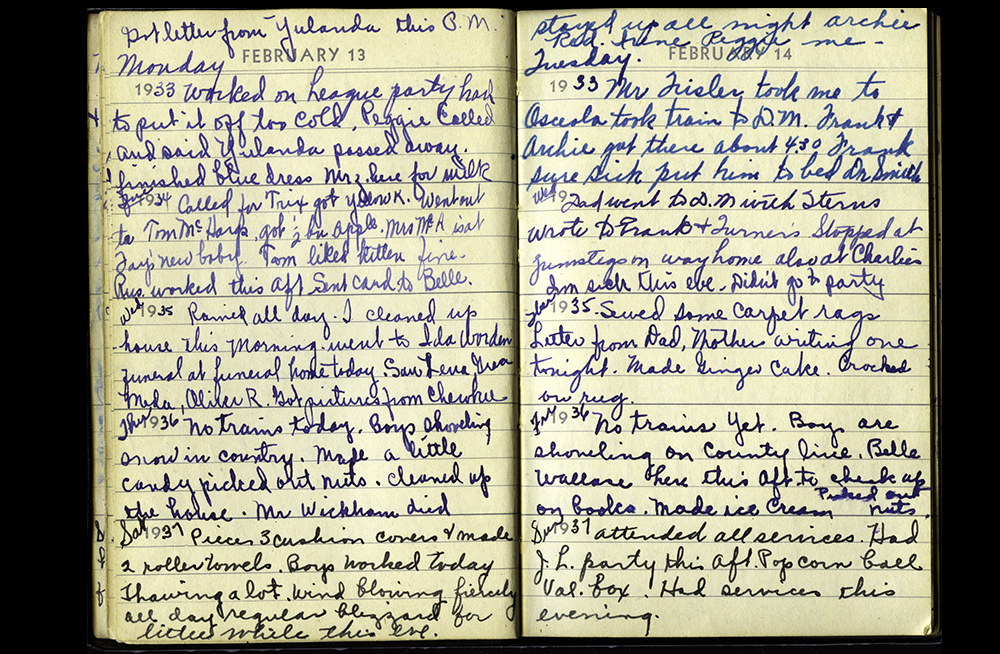 Got letter from Yulanda this P.M.
FEBRUARY 13
Monday
1933 Worked on League party had
to put it off too cold. Peggie Called
and said Yulanda passed away.
finished blue dress Mrs Z here for milk
1934 Called for Trix got yellow K. Went out
to Tom McHarps, got ½ bu apples. Mrs McA is at
Fay's new baby. Tom liked kitten fine.
Rus. worked this Aft Sent card to Belle.
Wed 1935 Rained all day. I cleaned up
house this morning. went to Ida Worden
funeral at funeral home today. Saw Lena
Meda, Oliver R. Got pictures from Cherokee
Thur 1936 No trains today. Boys shoveling
snow in country. Made a little
candy picked out nuts. Cleaned up
the house. Mr Wickham died
Sat 1937 Pieced 3 cushion covers & made
2 roller towels. Boys worked today
Thawing a lot. wind blowing fiercely
all day regular blizzard for
little while this eve.
stayed up all night archie
Red. Irene Peggie me -
FEBRUARY 14
Tuesday.
1933 Mr Tisley took me to
Osceola took train to D.M. Frank &
Archie got there about 4:30 Frank
sure sick put him to bed Dr. Smith
Wed 19 Dad went to D.M with Sterns
wrote to Frank & Turners Stopped at
on way home also at Charlies
Im sick this eve. Didn't go to party
Thur 1935. Sewed some carpet rags
Letter from Dad, Mother writing one
tonight. Made Ginger Cake. Crocked
on rug.
Fri 1936 No trains Yet. Boys are
shoveling on County line. Belle
Wallace here this Aft. to check up
on books. Made ice Cream Picked out
nuts.
Sun 1937 attended all services. Had
J. L. party this Aft. Popcorn ball
Val. box. Had services this
evening.